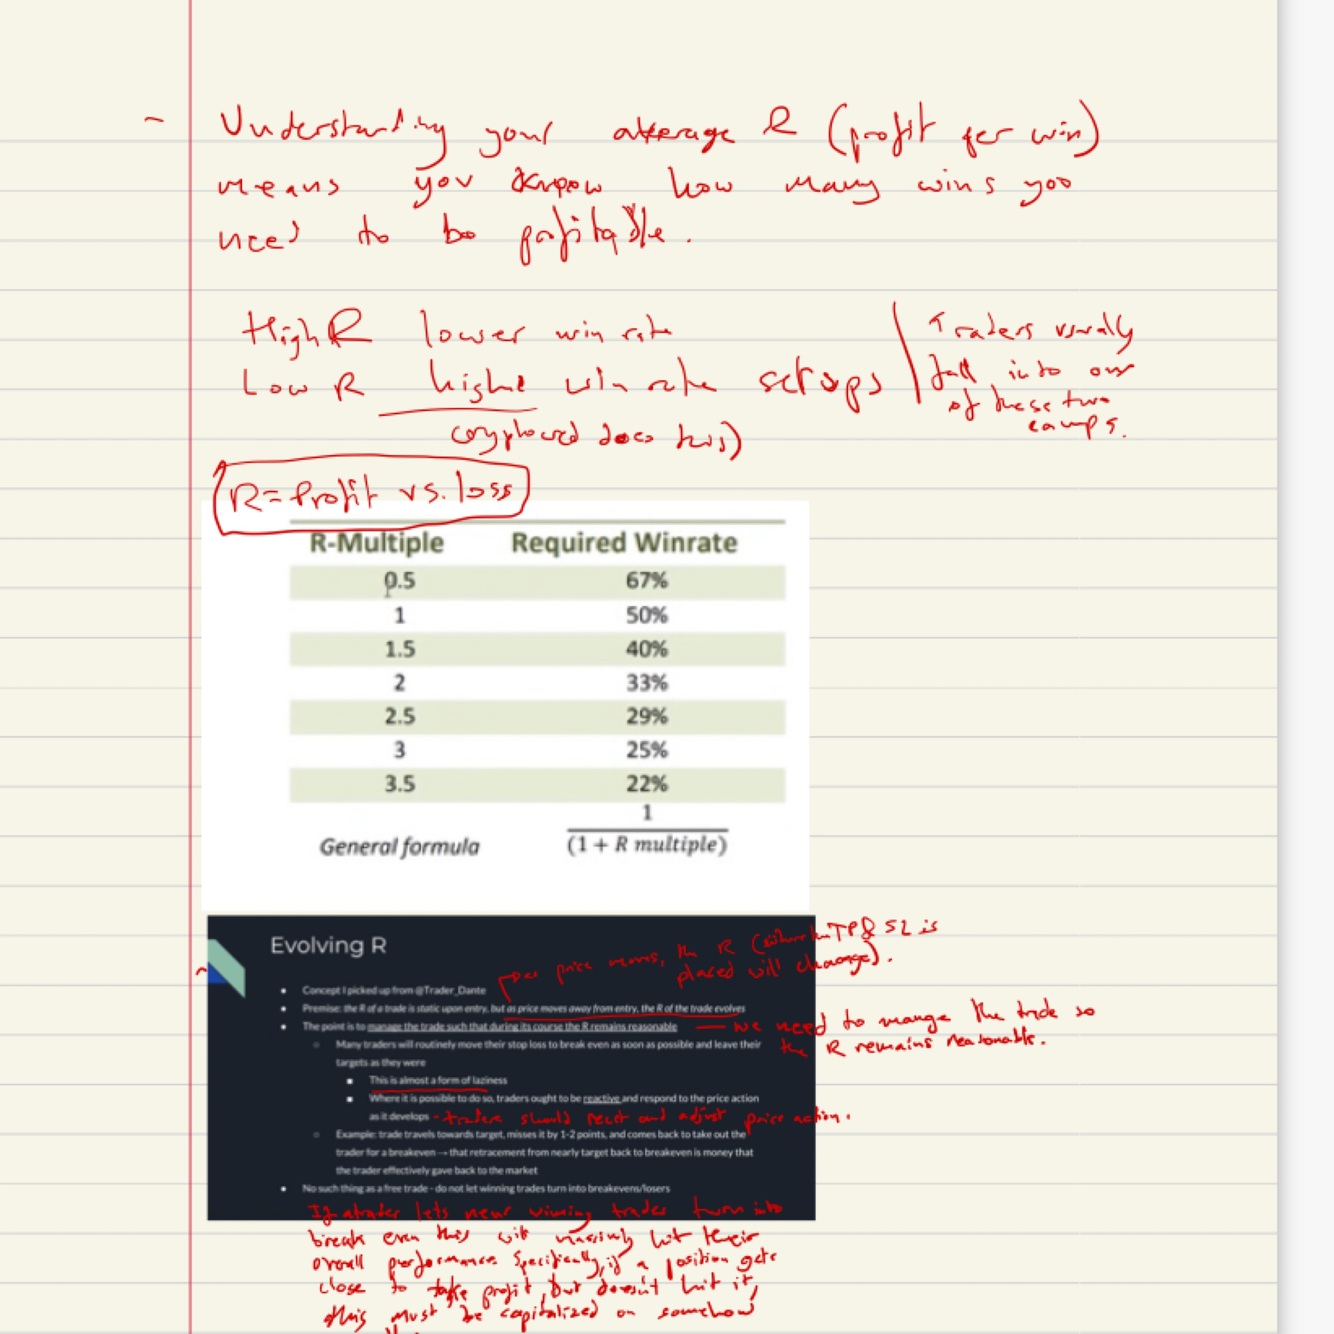 - Understanding your average R (profit per win)
means you know how many wins you
need to be profitable.
High R lower win rate
Low R higher win rate setups
(cryptocred does this)
Traders usually
fall into one
of these two
camps.
R = Profit vs. loss
R-Multiple Required Winrate
0.5 67%
1 50%
1.5 40%
2 33%
2.5 29%
3 25%
3.5 22%
General formula 1
(1 + R multiple)
Evolving R
price moves, the R (where the TP & SL is
placed will change).
• Concept I picked up from @Trader_Dante
• Premise: the R of a trade is static upon entry, but as price moves away from entry, the R of the trade evolves
• The point is to manage the trade such that during its course the R remains reasonable — we need to manage the trade so
the R remains reasonable.
○ Many traders will routinely move their stop loss to break even as soon as possible and leave their
targets as they were
■ This is almost a form of laziness
■ Where it is possible to do so, traders ought to be reactive and respond to the price action
as it develops - traders should react and adjust price action.
○ Example: trade travels towards target, misses it by 1-2 points, and comes back to take out the
trader for a breakeven → that retracement from nearly target back to breakeven is money that
the trader effectively gave back to the market
• No such thing as a free trade - do not let winning trades turn into breakevens/losers
If a trader lets near winning trades turn into
break even this will massively hit their
overall performance. Specifically, if a position gets
close to take profit, but doesn't hit it,
this must be capitalized on somehow